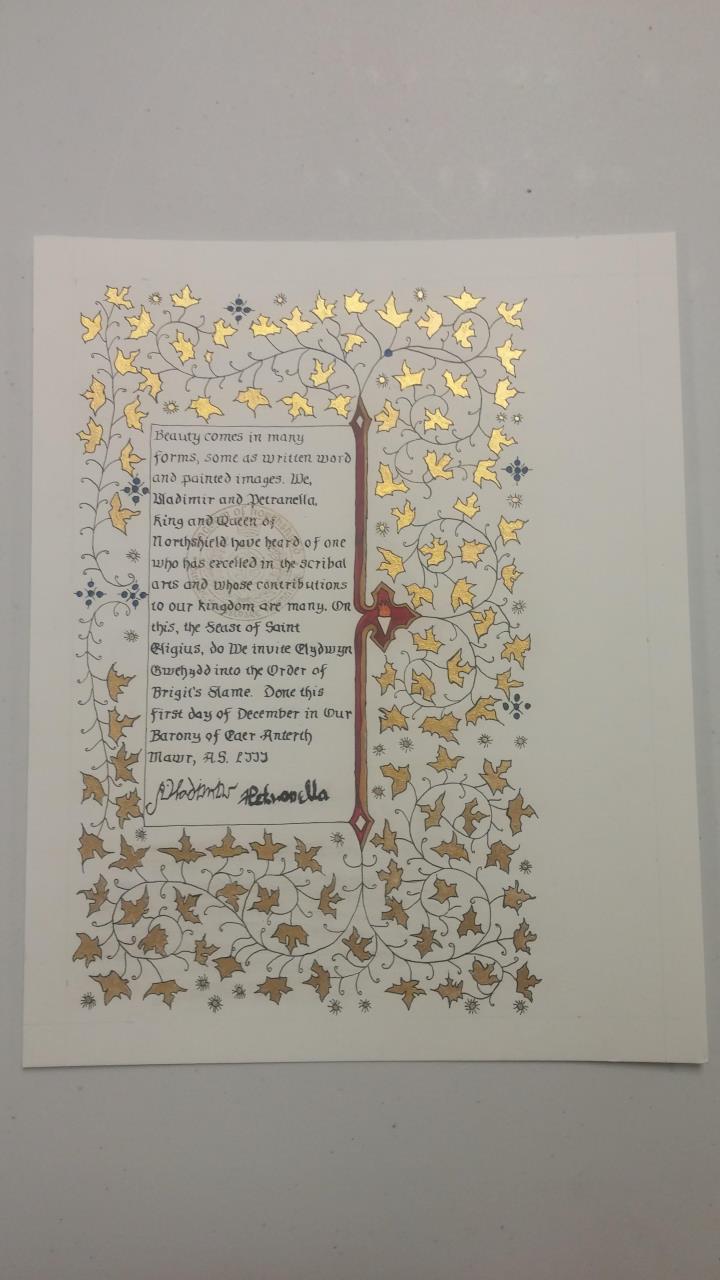 Beauty comes in many
forms, some as written word
and painted images. We,
Vladimir and Petranella,
King and Queen of
Northshield have heard of one
who has excelled in the scribal
arts and whose contributions
to our kingdom are many. On
this, the Feast of Saint
Eligius, do We invite Elydwyn
Gwehydd into the Order of
Brigit's Flame. Done this
first day of December in Our
Barony of Caer Anterth
Mawr, A.S. LIII
Vladimir Petranella